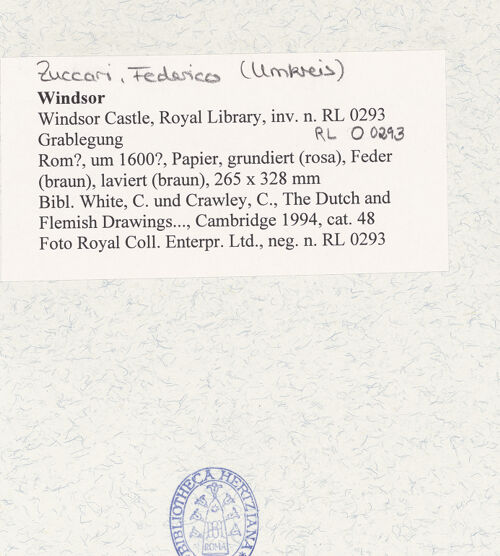 Zuccari, Federico (Umkreis)
Windsor
Windsor Castle, Royal Library, inv. n. RL 0293
Grablegung
RL O 0293
Rom?, um 1600?, Papier, grundiert (rosa), Feder
(braun), laviert (braun), 265 x 328 mm
Bibl. White, C. und Crawley, C., The Dutch and
Flemish Drawings..., Cambridge 1994, cat. 48
Foto Royal Coll. Enterpr. Ltd., neg. n. RL 0293
BIBLIOTHECA HERTZIANA
ROMA